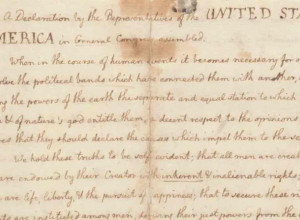 A Declaration by the Representatives of the UNITED ST
MERICA in General Congress assembled.
When in the course of human events it becomes necessary for
the political bands which have connected them with another,
the powers of the earth the separate and equal station to which
of nature's god entitle them, a decent respect to the opinions
that they should declare the causes which impel them to the
We hold these truths to be self-evident; that all men are
are endowed by their Creator with inherent & inalienable rights;
are life, liberty, & the pursuit of happiness; that to secure these
are instituted among men, their just powers from the